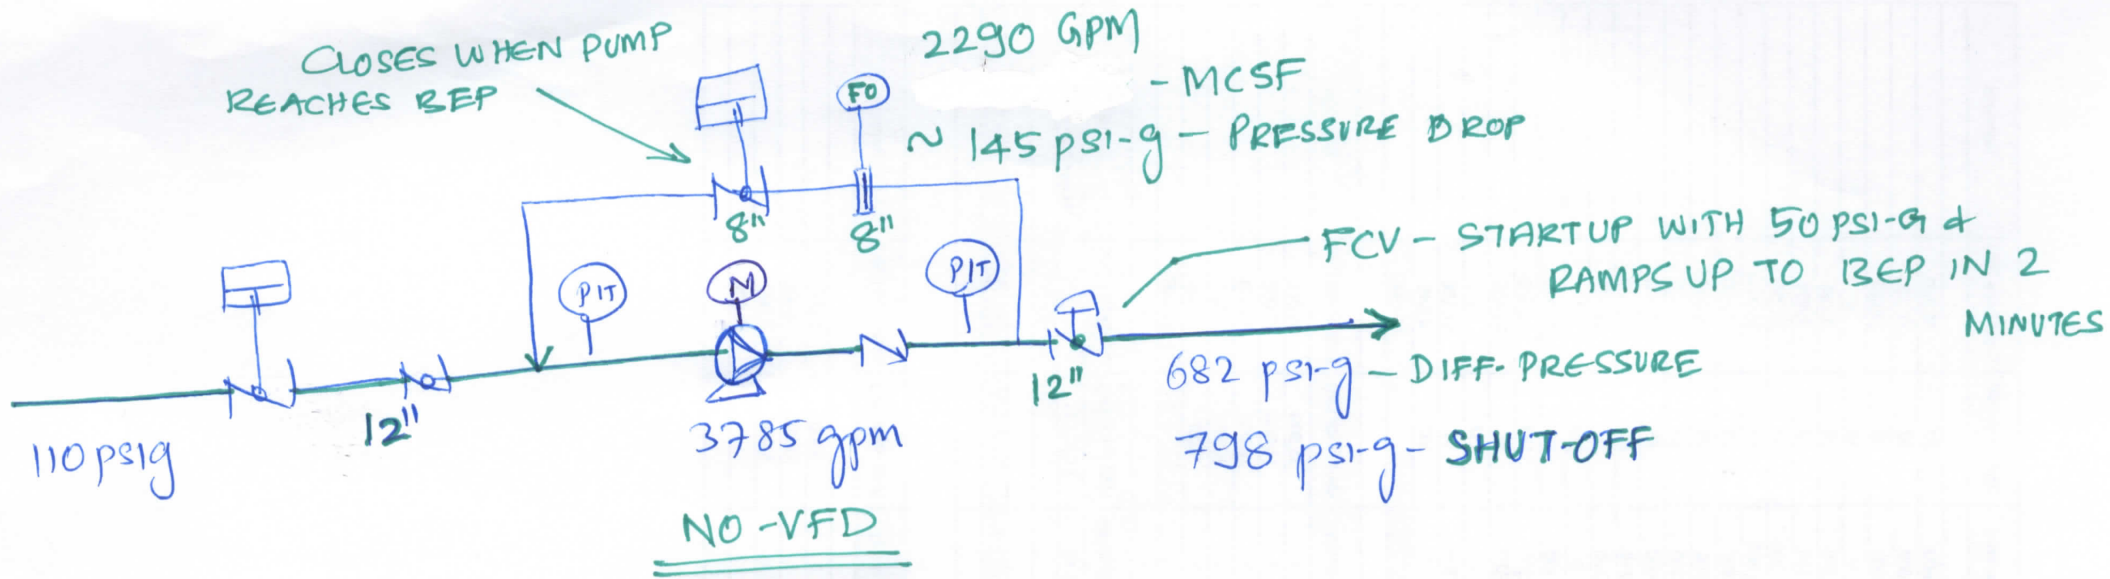 CLOSES WHEN PUMP
REACHES BEP
2290 GPM
- MCSF
~ 145 psi-g - PRESSURE DROP
FO
8"
8"
FCV - STARTUP WITH 50 PSI-G &
RAMPS UP TO BEP IN 2
MINUTES
PIT
M
PIT
12"
12"
110 psig
3785 gpm
682 psi-g - DIFF. PRESSURE
798 psi-g - SHUT-OFF
NO-VFD